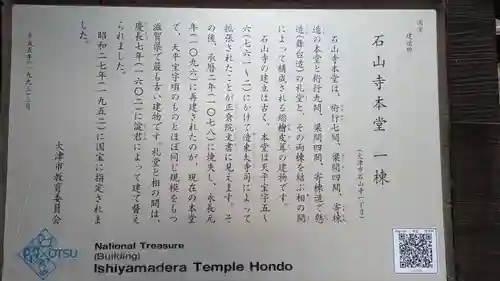 国宝
建造物
石山寺本堂 一棟
(大津市石山寺一丁目)
石山寺本堂は、桁行七間、梁間四間、寄棟
造の本堂と桁行九間、梁間四間、寄棟造で懸
造(舞台造)の礼堂と、その両棟を結ぶ相の間
によって構成される総檜皮葺の建物です。
石山寺の建立は古く、本堂は天平宝字五、
六(七六一~二)にかけて造東大寺司によって
拡張されたことが正倉院文書に見えます。そ
の後、承暦二年(一〇七八)に焼失し、永長元
年(一〇九六)に再建されたのが、現在の本堂
で、天平宝字頃のものとほぼ同じ規模をもつ
滋賀県で最も古い建物です。礼堂と相の間は、
慶長七年(一六〇二)に淀君によって建て替え
られました。
昭和二七年(一九五二)に国宝に指定されま
した。
大津市教育委員会
平成五年(一九九三)三月
OTSU
National Treasure
(Building)
Ishiyamadera Temple Hondo